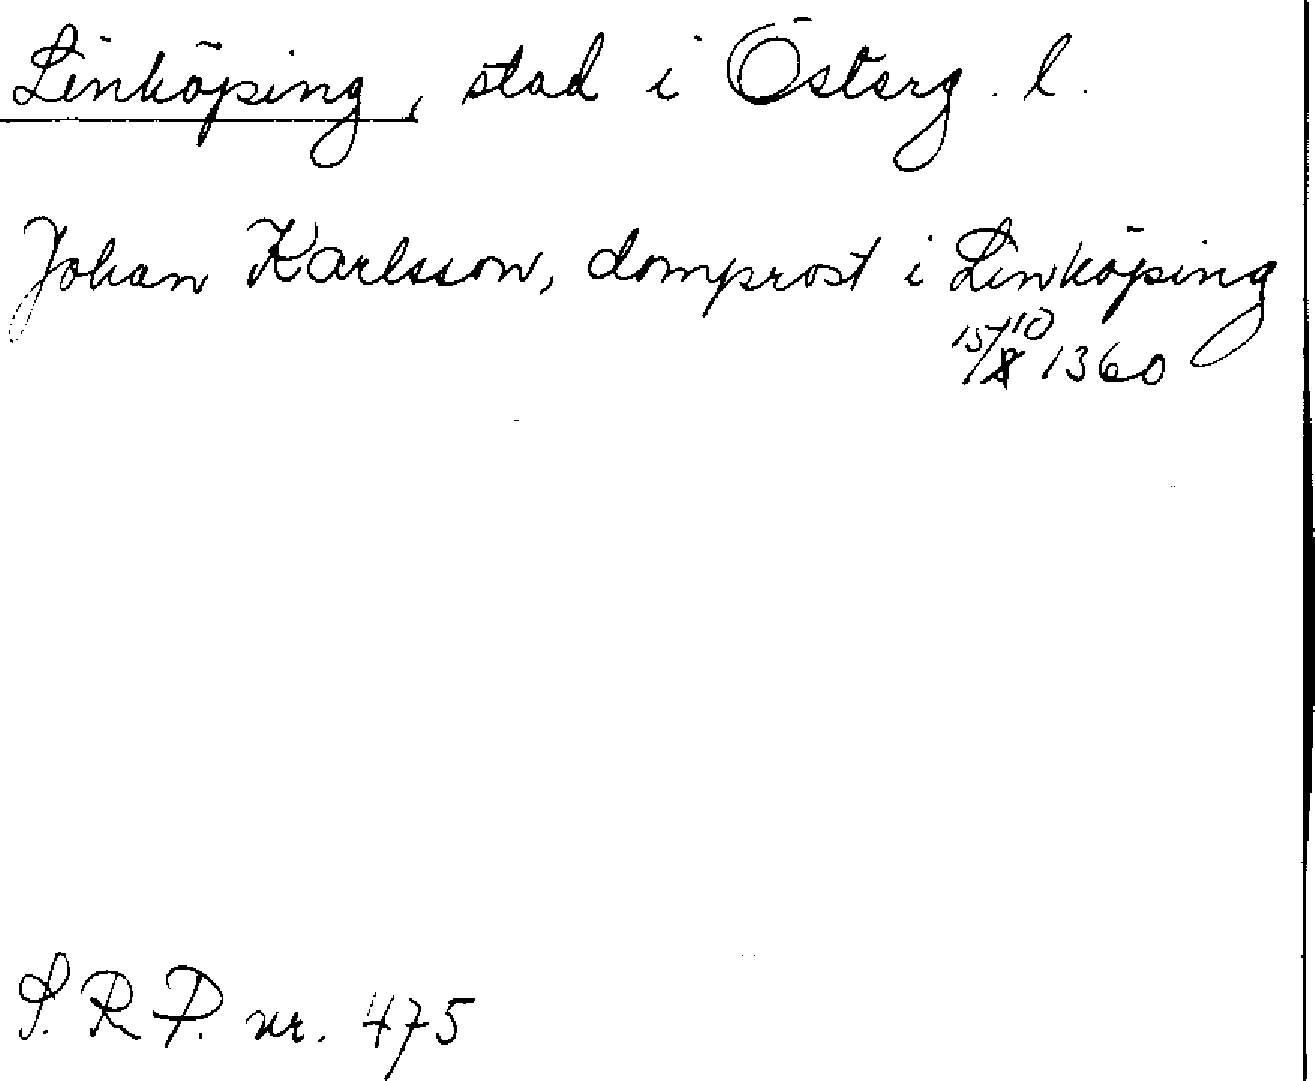 Linköping, stad i Österg. l.
Johan Karlsson, domprost i Linköping
15/10 1360
S.R.P. nr. 475